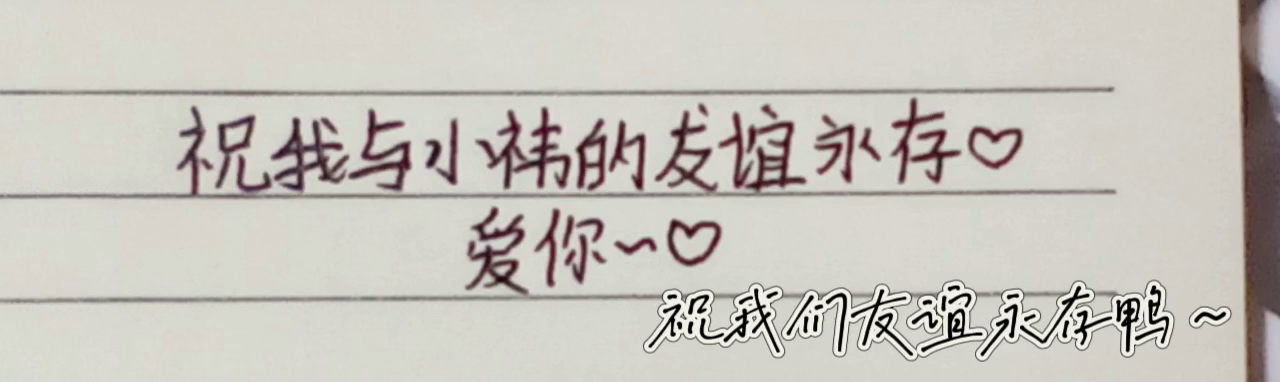 祝我与小祎的友谊永存♡
爱你~♡
祝我们友谊永存鸭~